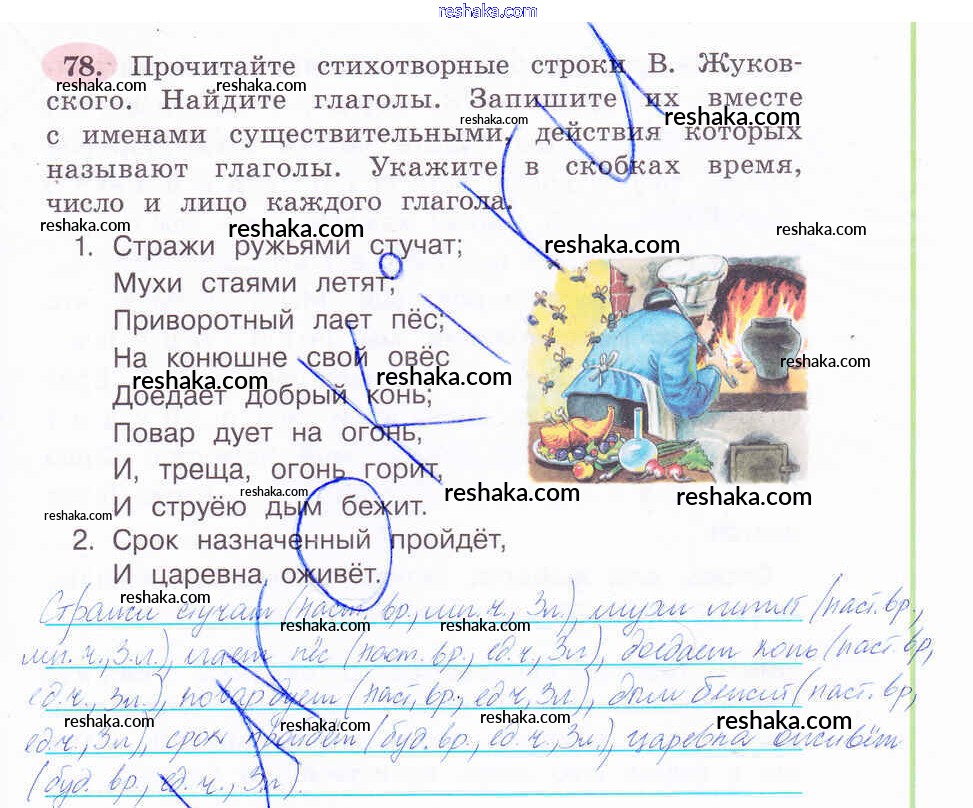 reshaka.com
78. Прочитайте стихотворные строки В. Жуков-
reshaka.com reshaka.com
ского. Найдите глаголы. Запишите их вместе
reshaka.com reshaka.com
с именами существительными, действия которых
называют глаголы. Укажите в скобках время,
reshaka.com reshaka.com
число и лицо каждого глагола.
reshaka.com reshaka.com reshaka.com reshaka.com
1. Стражи ружьями стучат;
Мухи стаями летят;
Приворотный лает пёс;
На конюшне свой овёс
reshaka.com reshaka.com reshaka.com
Доедает добрый конь;
Повар дует на огонь,
И, треща, огонь горит,
reshaka.com reshaka.com reshaka.com reshaka.com
И струёю дым бежит.
2. Срок назначенный пройдёт,
И царевна оживёт.
reshaka.com
Стражи стучат (наст. вр., мн. ч., 3 л), мухи летят (наст. вр.,
reshaka.com reshaka.com
мн. ч., 3 л.), лает пёс (наст. вр., ед. ч., 3 л), доедает конь (наст. вр,
ед. ч., 3 л), повар дует (наст. вр., ед. ч, 3 л), дым бежит (наст. вр,
reshaka.com reshaka.com reshaka.com reshaka.com
ед. ч., 3 л), срок пройдёт (буд. вр., ед. ч., 3 л.), царевна оживёт
(буд. вр., ед. ч., 3 л).